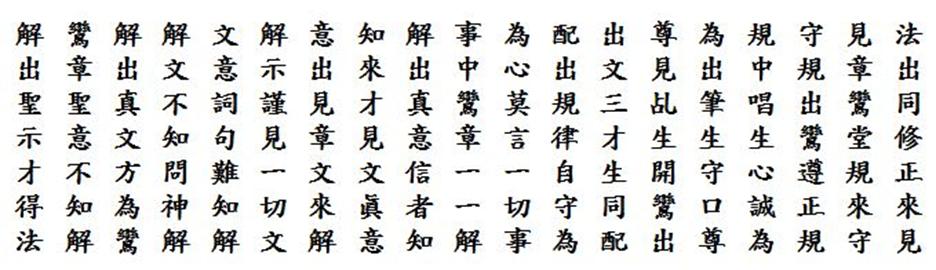 法出同修正來見
見章鸞堂規來守
守規出鸞遵正規
規中唱生心誠為
為出筆生守口尊
尊見乩生開鸞出
出文三才生同配
配出規律自守為
為心莫言一切事
事中鸞章一一解
解出真意信者知
知來才見文眞意
意出見章文來解
解示謹見一切文
文意詞句難知解
解文不知問神解
解出真文方為鸞
鸞章聖意不知解
解出聖示才得法